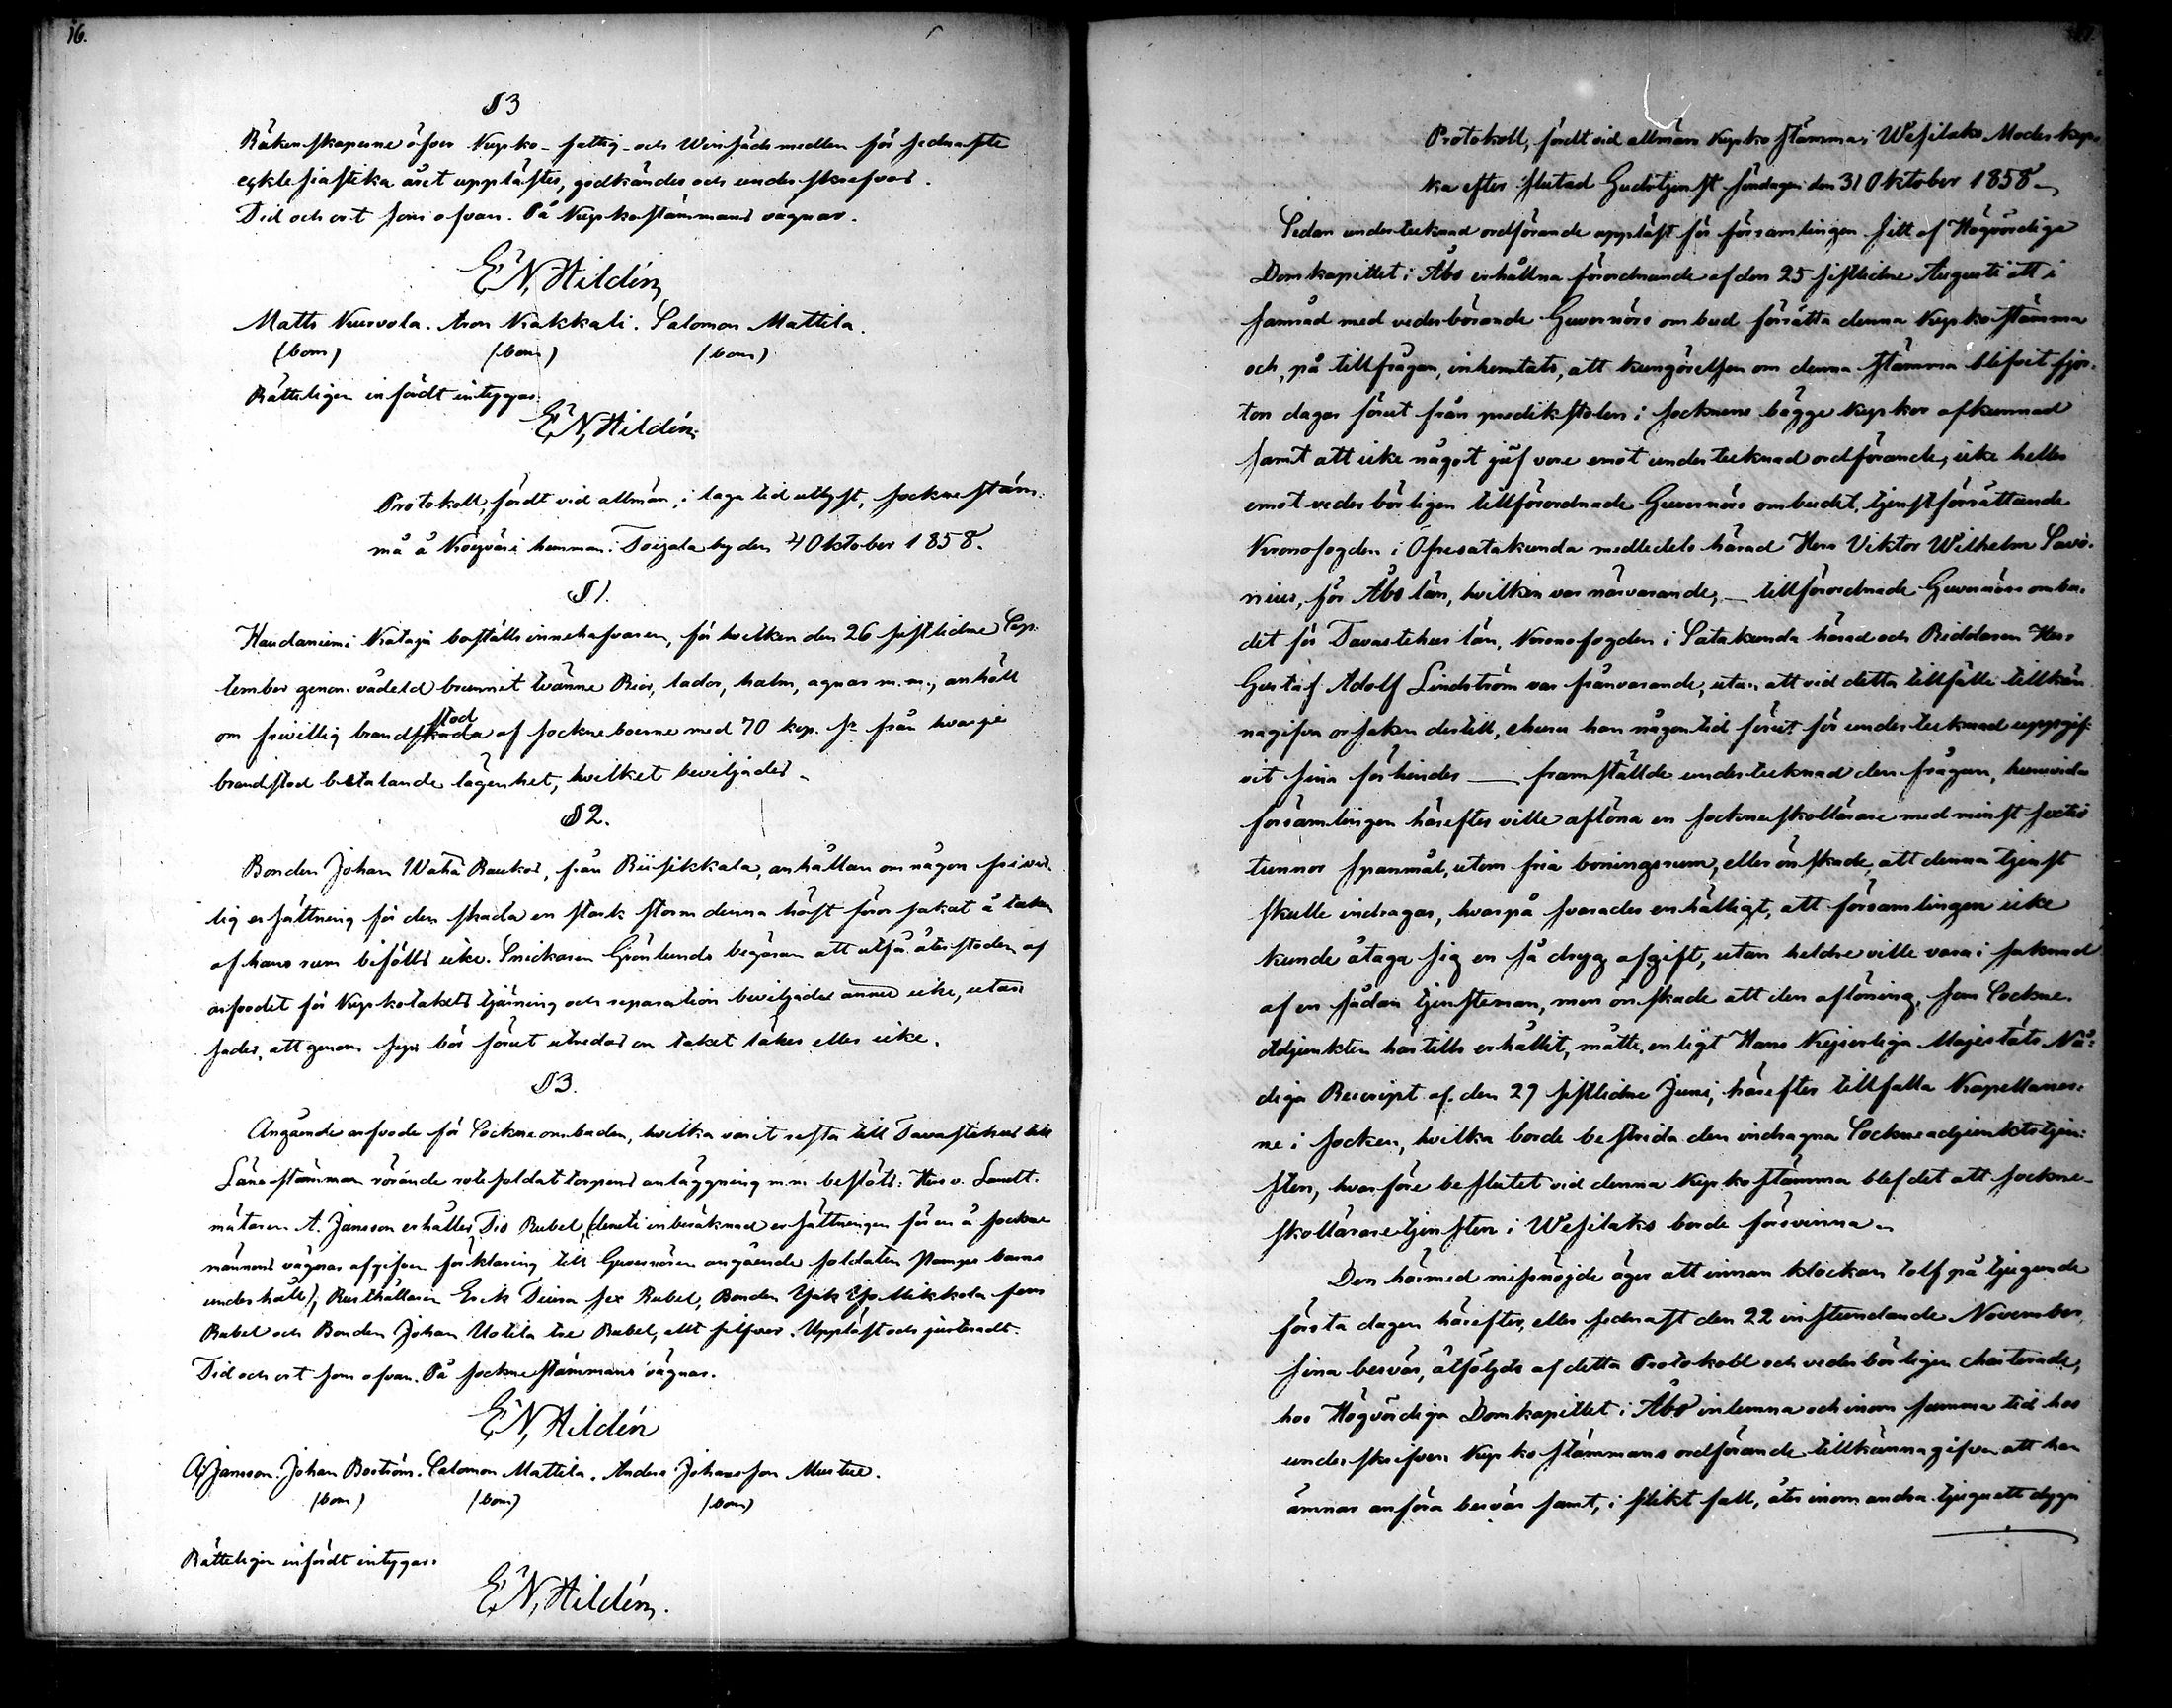 16.
§ 3
Räkenskaperne öfver Kyrko- fattig- och Winsäds medlen för sednaste
ecklesiastika året upplästes, godkändes och underskrefvos.
Tid och ort som ofvan. På Kyrkostämmans vägnar.
E. N. Hildén,
Matts Kurvola. Aron Krakkali. Salomon Mattila.
(bom) (bom) (bom)
Rätteligen infördt intygar.
E. N. Hildén.
Protokoll, fördt vid allmän, i laga tid utlyst, sockne stäm-
ma å hemman i Toijala by den 4 Oktober 1858.
§ 1.
Haudaniemi Krataja boställs innehafvaren, för hvilken den 26 sistledne Sep-
tember genom vådeld brunnit tvänne Rior, lador, halm, agnar m. m., anhöll
om frivillig brandskada stod af sockneboerne med 70 kop. sr från hvarje
brandstod betalande lägenhet, hvilket beviljades.
§ 2.
Bonden Johan Wäha Raukos, från Riisikkala, anhållan om någon frivil-
lig ersättning för den skada en stark storm denna höst förorsakat å taken
af hans rum bifölls icke. Snickaren Grönlunds begäran att utfå återstoden af
arfvodet för Kyrkotakets tjärning och reparation beviljades ännu icke, utan
sades, att genom syn bör förut utredas om taket läker eller icke.
§ 3.
Angående arfvode för Sockneombuden, hvilka varit resta till Tavastehus till
Länestämman rörande rotesoldat torpens anläggning m.m. beslöts: Herr v. Landt-
mätaren A. Jansson erhåller Tio Rubel, (deruti inberäknad ersättningen för en å sockne
männens vägnar afgifven förklaring till Guvernören angående soldaten Kampes barns
underhåll), Rusthållaren Erik Tiura sex Rubel, Bonden Isak Yjo Mikkola fem
Rubel och Bonden Johan Uotila tre Rubel, allt silfver. Uppläst och justeradt.
Tid och ort som ofvan. På sockne stämmans vägnar.
E. N. Hildén
A. Jansson. Johan Boström. Salomon Mattila. Anders Johansson Mustue.
(bom) (bom) (bom)
Rätteligen infördt intygar:
E. N. Hildén.
17.
Protokoll, fördt vid allmän Kyrkostämma i Wesilaks Moderkyr-
ka efter slutad Gudstjenst Söndagen den 31 Oktober 1858.
Sedan undertecknad ordförande uppläst för församlingen sitt af Högvördiga
Domkapitlet i Åbo erhållna förordnande af den 25 sistledne Augusti att i
samråd med vederbörande Guvernörs ombud förrätta denna Kyrkostämma
och, på tillfrågan, inhemtats, att kungörelsen om denna stämma blifvit fjor-
ton dagar förut från predikstolen i socknens bägge kyrkor afkunnad
samt att icke något jäf vore emot undertecknad ordförande, icke heller
emot vederbörligen tillförordnade Guvernörs ombudet, tjenstförrättande
Kronofogden i Öfresatakunda medledels härad Herr Viktor Wilhelm Savo-
nius, för Åbo län, hvilken var närvarande, — tillförordnade Guvernörs ombu-
det för Tavastehus län, Kronofogden i Satakunda härad och Riddaren Herr
Gustaf Adolf Lindström var frånvarande, utan att vid detta tillfälle tillkän-
nagifva orsaken dertill, ehuru han någon tid förut för undertecknad uppgif-
vit sina förhinder — framställde undertecknad den frågan, huruvida
församlingen härefter ville aflöna en sockneskollärare med minst sextio
tunnor spanmål, utom fria boningsrum, eller önskade, att denna tjenst
skulle indragas, hvarpå svarades enhälligt, att församlingen icke
kunde åtaga sig en så dryg afgift, utan heldre ville vara i saknad
af en sådan tjensteman, men önskade att den aflöning, som Sockne-
Adjunkten härtills erhållit, måtte, enligt Hans Kejserliga Majestäts Nå-
diga Rescript af den 27 sistledne Juni, härefter tillfalla Kapellaner-
ne i socken, hvilka borde bestrida den indragna Sockneadjunktstjen-
sten, hvarföre beslutet vid denna Kyrkostämma blef det att sockne-
skollärare tjensten i Wesilaks borde försvinna.
Den härmed missnöjde äger att innan klockan tolf på tjugonde
första dagen härefter, eller sednast den 22 instundande November,
sina besvär, åtföljde af detta Protokoll och vederbörligen charterade,
hos Högvördiga Domkapitlet i Åbo inlemna och inom samma tid hos
underskrifven Kyrkostämmans ordförande tillkännagifva att han
ämnar anföra besvär samt, i slikt fall, åter inom andra tjuguett dygn